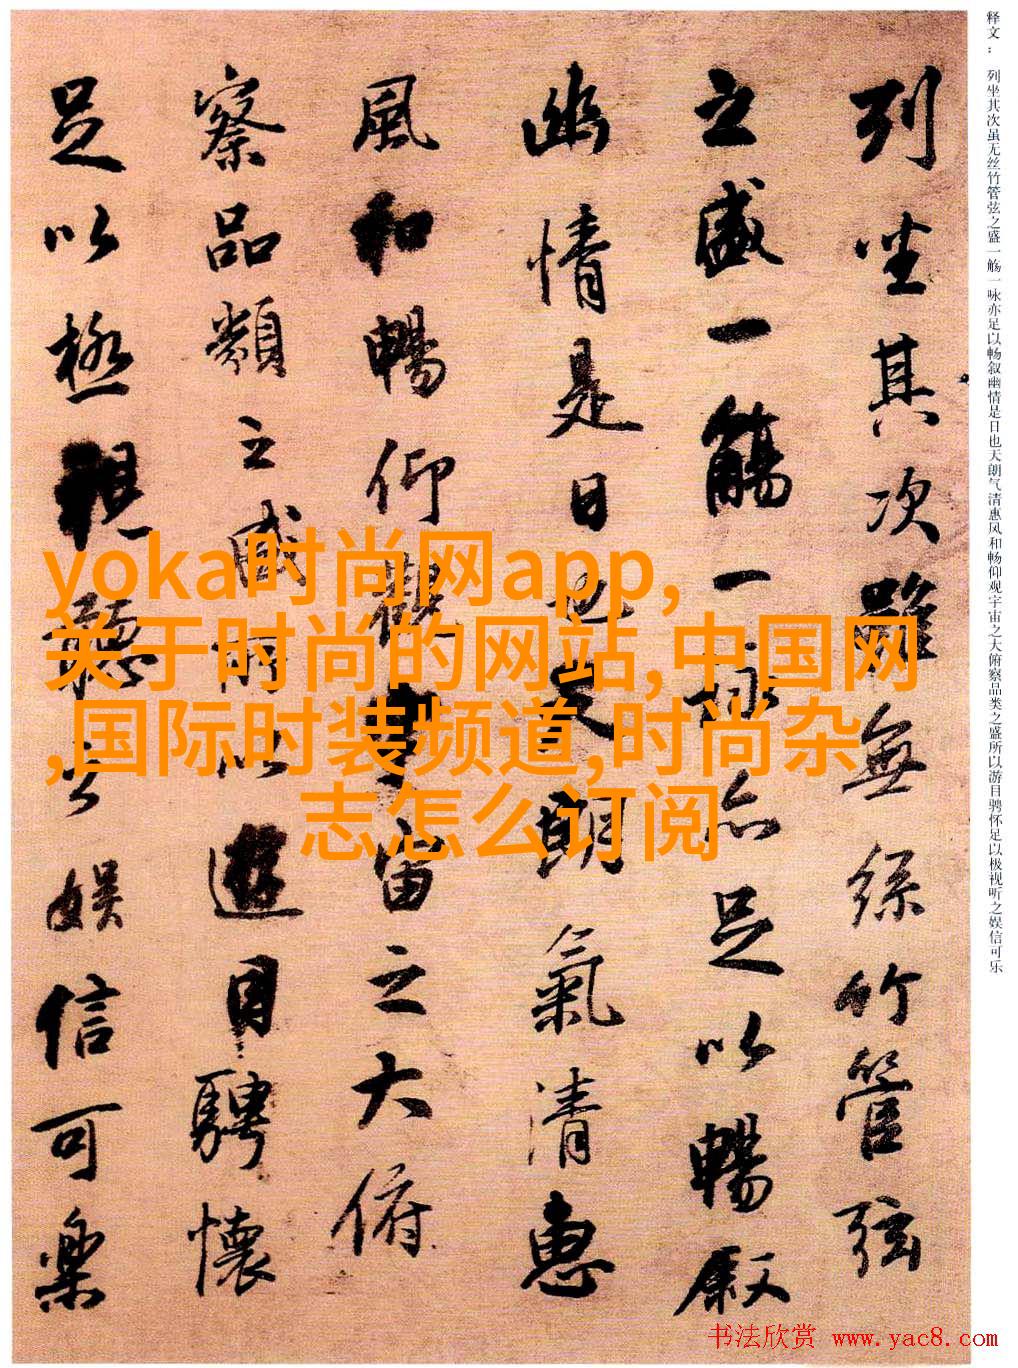 释文： 列坐其次虽无丝竹管弦之盛一觞一咏亦足以畅叙幽情是日也天朗气清惠风和畅仰观宇宙之大俯察品类之盛所以游目骋怀足以极视听之娱信可乐
列坐其次雖無絲竹管弦
之盛一觴一詠亦足以暢叙
幽情是日也天朗氣清惠
風和暢仰觀宇宙之大俯
察品類之盛所以遊目騁懷
足以極視聽之娛信可樂
yoka时尚网app,
关于时尚的网站,中国网
,国际时装频道,时尚杂
志怎么订阅
书法欣赏 www.yac8.com